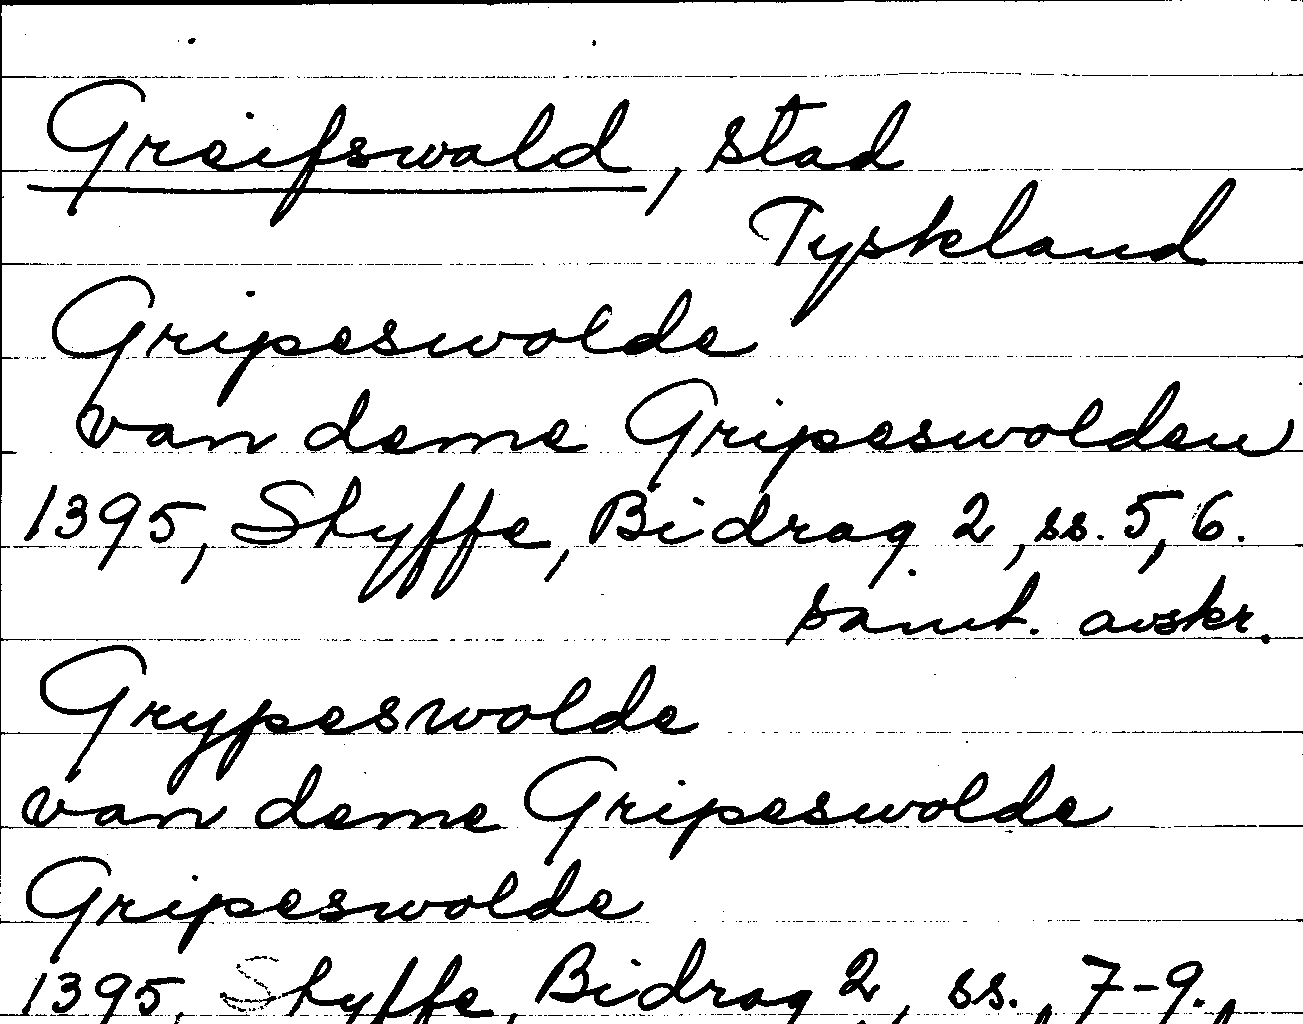 Greifswald, stad
Tyskland
Gripeswolde
van deme Gripeswolden
1395, Styffe, Bidrag 2, ss. 5, 6.
samt. avskr.
Grypeswolde
van deme Gripeswolde
Gripeswolde
1395, Styffe, Bidrag 2, ss. 7-9.,